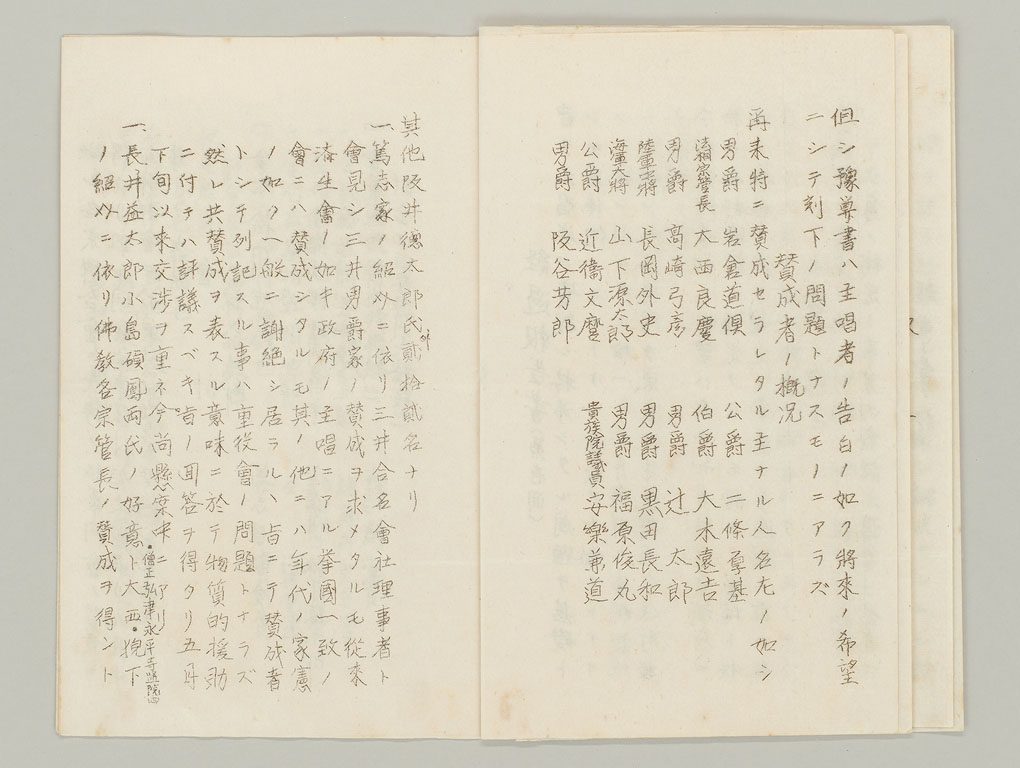 但シ豫算書ハ主唱者ノ告白ノ如ク將來ノ希望
ニシテ刻下ノ問題トナスモノニアラズ
賛成者ノ概況
再来特ニ賛成セラレタル主ナル人名左ノ如シ
男爵 岩倉道倶 公爵 二條厚基
法相宗管長 大西良慶 伯爵 大木遠吉
男爵 高崎弓彦 男爵 辻太郎
陸軍中將 長岡外史 男爵 黒田長和
海軍大將 山下源太郎 男爵 福原俊丸
公爵 近衞文麿 貴族院議員 安樂兼道
男爵 阪谷芳郎
其他阪井德太郎氏外貳拾貳名ナリ
一、篤志家ノ紹介ニ依リ三井合名會社理事者ト
會見シ三井男爵家ノ賛成ヲ求メタルモ從來
済生會ノ如キ政府ノ主唱ニアル挙國一致ノ
會ニハ賛成シタルモ其ノ他ニハ年代ノ家憲
ノ如ク一般ニ謝絶シ居ラルヽ旨ニテ賛成者
トシテ列記スル事ハ重役會ノ問題トナラズ
然レ共賛成ヲ表スル意味ニ於テ物質的援助
ニ付テハ評議スベキ旨ノ回答ヲ得タリ五月
下旬以來交渉ヲ重ネ今尚懸案中ニアリ
一、長井益太郎小島碩鳳両氏ノ好意ト大西・僧正弘津永平寺監院・猊下
ノ紹介ニ依リ佛教各宗管長ノ賛成ヲ得ント